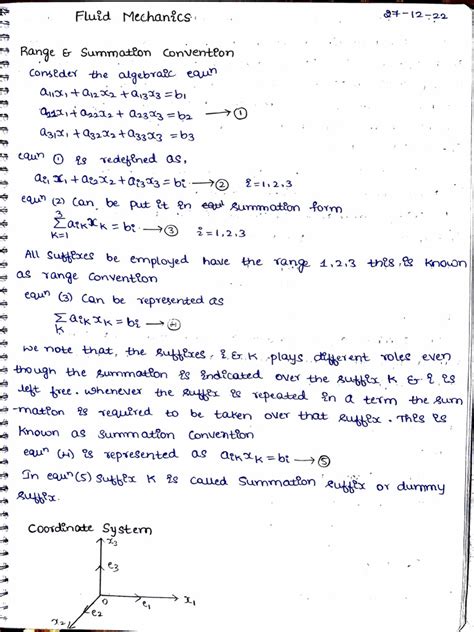 Fluid Mechanics
27-12-22
Range & Summation Convention
Consider the algebraic equn
a11x1 + a12x2 + a13x3 = b1
a21x1 + a22x2 + a23x3 = b2 → ①
a31x1 + a32x2 + a33x3 = b3
equn ① is redefined as,
ai1 x1 + ai2x2 + ai3x3 = bi → ② i = 1,2,3
equn (2) can be put it in summation form
3
Σ aikxk = bi → ③ i = 1,2,3
k=1
All suffixes be employed have the range 1,2,3 this is known
as range convention
equn (3) can be represented as
Σ aikxk = bi → ④
k
we note that, the suffixes, i & k plays different roles, even
though the summation is indicated over the suffix k & i is
left free. whenever the suffix is repeated in a term the sum
-mation is required to be taken over that suffix. This is
known as summation convention
equn (4) is represented as aikxk = bi → ⑤
In equn(5) suffix k is called summation suffix or dummy
suffix.
Coordinate System
x3
e3
0
e1
x1
e2
x2